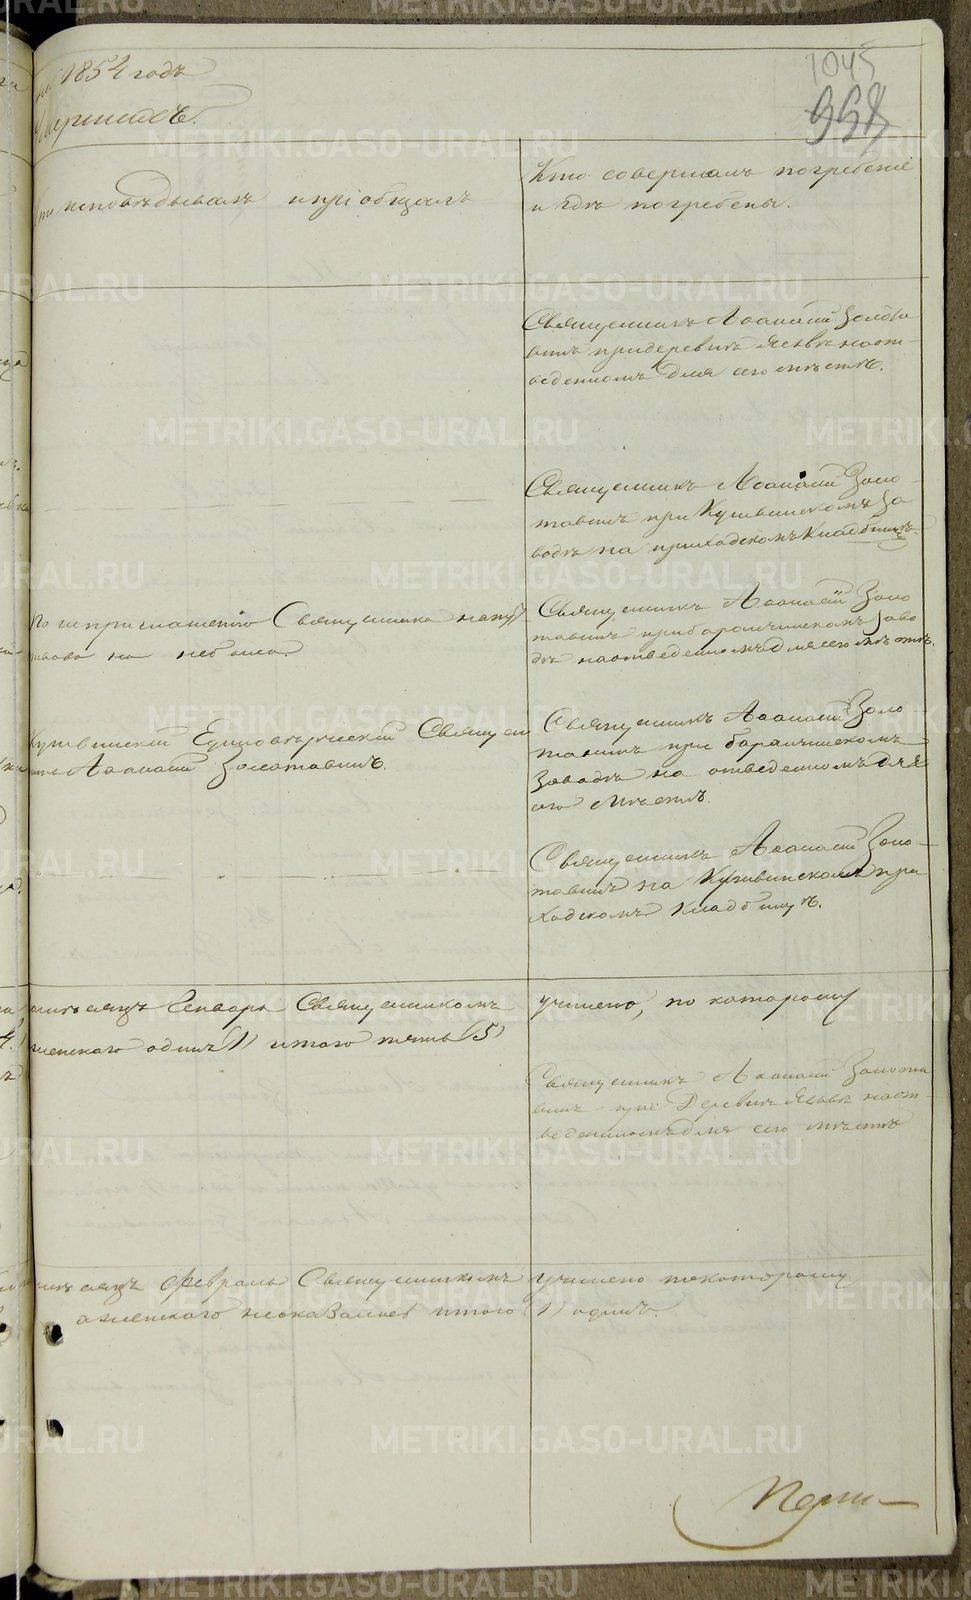 на 1854 годъ
умершихъ.
1045
Кто исповѣдывалъ и пріобщалъ
Кто совершалъ погребеніе
и гдѣ погребены.
Священникъ Аѳанасій Золота
винъ при деревнѣ Яквѣ на от
веденномъ для сего мѣстѣ.
Священникъ Аѳанасій Золо
тавинъ при Кушвинскомъ за
водѣ на приходскомъ кладбищѣ.
По неприглашенію Священника напут
ствова на небыла.
Священникъ Аѳанасій Золо
тавинъ при баранчинскомъ заво
дѣ на отведенномъ для сего мѣстѣ.
Кушвинскій Единовѣрческій Священ
никъ Аѳанасій Золотавинъ.
Священникъ Аѳанасій Золо
тавинъ при баранчинскомъ
Заводѣ на отведенномъ для
сего мѣстѣ.
Священникъ Аѳанасій Золо
тавинъ на Кушвинскомъ при
ходскомъ кладбищѣ.
мѣсяцъ Генварь Священникомъ учинено, по которому
женскаго одинъ (1) итого пять (5)
Священникъ Аѳанасій Золота
винъ при Деревнѣ Яквѣ на от
веденномъ для сего мѣстѣ
мѣсяцъ Февраль Священникомъ учинено по которому
а женскаго неоказалось итого (1) одинъ.
METRIKI.GASO-URAL.RU